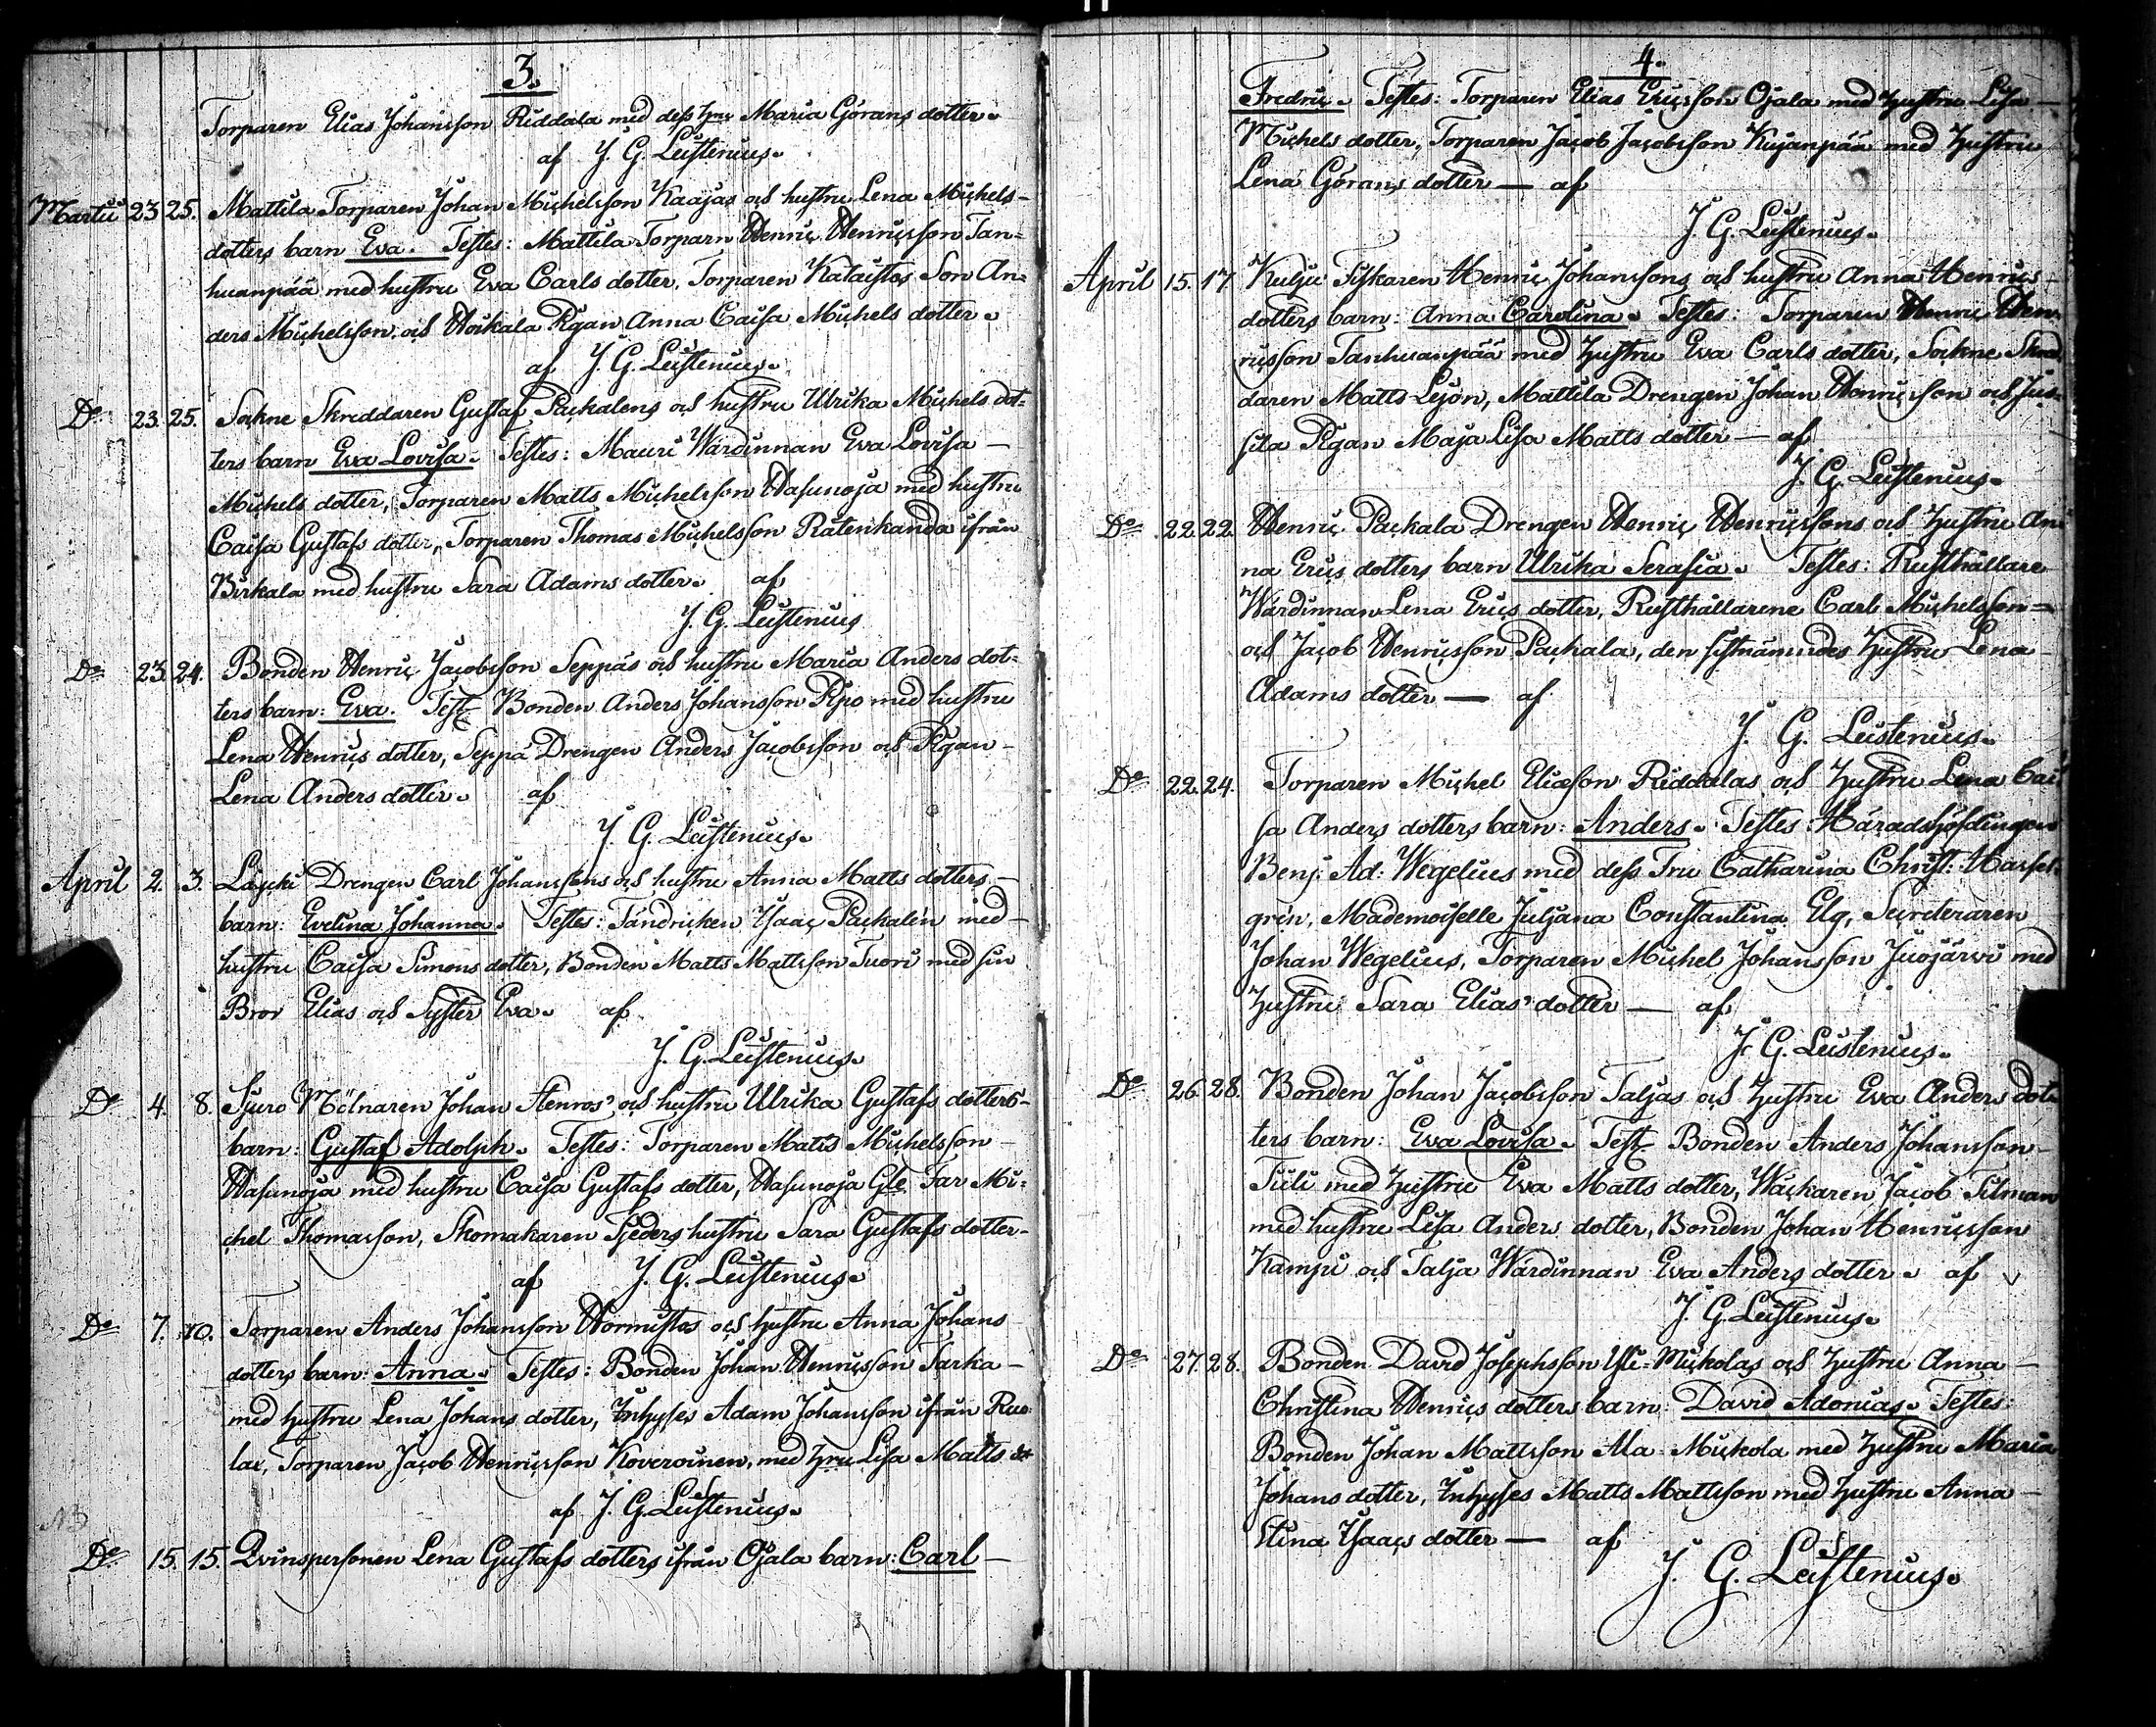 3.
Torparen Elias Johansson Riddala med dess Hru Maria Görans dotter.
af J. G. Leistenius.
Martii 23 25. Mattila Torparen Johan Michelsson Kaajas och hustru Lena Michels-
dotters barn Eva. Testes: Mattila Torparn Henric Henricsson Tan=
huanpää med hustru Eva Carls dotter, Torparen Kataistos Son An=
ders Michelsson och Hoikala Pigan Anna Caisa Michels dotter.
af J. G. Leistenius.
Do 23. 25. Sokne Skreddaren Gustaf Packalens och hustru Ulrika Michels dot=
ters barn Eva Lovisa. Testes: Mauri Wärdinnan Eva Lovisa
Michels dotter, Torparen Matts Michelsson Hasunoja med hustru
Caisa Gustafs dotter, Torparen Thomas Michelsson Rätenkanda ifrån
Birkala med hustru Sara Adams dotter. af
J. G. Leistenius
Do 23. 24. Bonden Henric Jacobsson Seppäs och hustru Maria Anders dot=
ters barn: Eva. Test. Bonden Anders Johansson Pipo med hustru
Lena Henrics dotter, Seppä Drengen Anders Jacobsson och Pigan
Lena Anders dotter. af
J. G. Leistenius.
April 2. 3. Läycki Drengen Carl Johanssons och hustru Anna Matts dotters
barn: Evelina Johanna. Testes: Tandricken Isaac Packalén med
hustru Caisa Simons dotter, Bonden Matts Mattsson Tuori med sin
Bror Elias och Syster Eva. af
J. G. Leistenius.
Do 4. 8. Sjuro Mölnaren Johan Stenros' och hustru Ulrika Gustafs dotters
barn: Gustaf Adolph. Testes: Torparen Matts Michelsson
Hasunoja med hustru Caisa Gustafs dotter, Hasunoja Gle Far Mi=
chel Thomasson, Skomakaren Fjeders hustru Sara Gustafs dotter
af J. G. Leistenius.
Do 7. 10. Torparen Anders Johansson Hormistos och hustru Anna Johans
dotters barn: Anna. Testes: Bonden Johan Henricsson Tarka
med hustru Lena Johans dotter, Inhyses Adam Johansson ifrån Ruo
lax, Torparen Jacob Henricsson Koveroinen, med Hru Lisa Matts dr
af J. G. Leistenius.
NB
Do 15. 15. Qvinspersonen Lena Gustafs dotters ifrån Ojala barn: Carl
4.
Fredric. Testes: Torparen Elias Ericsson Ojala med hustru Lisa
Michels dotter, Torparen Jacob Jacobsson Kujanpää med Hustru
Lena Görans dotter — af
J. G. Leistenius.
April 15. 17 Kulju Fiskaren Henric Johanssons och hustru Anna Henrics
dotters barn: Anna Carolina. Testes: Torparen Henric Hen
ricsson Tanhuanpää med Hustru Eva Carls dotter, Sokne Skred
daren Matts Lejon, Mattila Drengen Johan Henricsson och Jus=
sila Pigan Maja Lisa Matts dotter — af
J. G. Leistenius.
Do 22. 22. Henric Packala Drengen Henric Henricssons och Hustru An
na Erics dotters barn Ulrika Serafia. Testes: Rusthållare
Wärdinnan Lena Erics dotter, Rusthållarene Carl Michelsson
och Jacob Henricsson Packala, den sistnämndes Hustru Lena
Adams dotter — af
J. G. Leistenius.
Do 22. 24. Torparen Michel Eliæson Riddalas och Hustru Lena Cai
sa Anders dotters barn: Anders. Testes: Häradshöfdingen
Benj: Ad: Wegelius med dess Fru Catharina Christ: Hassel=
grén, Mademoiselle Juljana Constantina Elg, Secreteraren
Johan Wegelius, Torparen Michel Johansson Juojärvi med
Hustru Sara Elias' dotter — af
J. G. Leistenius.
Do 26. 28. Bonden Johan Jacobsson Taljas och Hustru Eva Anders dot
ters barn: Eva Lovisa. Test. Bonden Anders Johansson
Tuli med Hustru Eva Matts dotter, Wäckaren Jacob Silman
med hustru Lisa Anders dotter, Bonden Johan Henricsson
Kamppi och Talja Wärdinnan Eva Anders dotter. af
J. G. Leistenius.
Do 27. 28. Bonden David Josephsson Yli=Mickolas och Hustru Anna
Christina Henrics dotters barn: David Adonias. Testes:
Bonden Johan Mattsson Ala Mickola med Hustru Maria
Johans dotter, Inhyses Matts Mattsson med Hustru Anna
Stina Isaacs dotter — af
J. G. Leistenius.